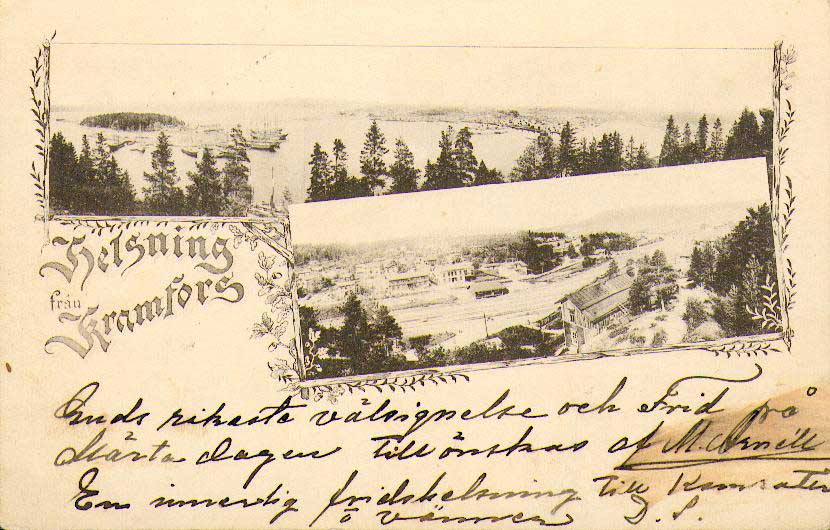 Helsning
från
Kramfors
Guds rikaste välsignelse och Frid på
Märta dagen tillönskas af M.
En innerlig fridshelsning till Kamrater
å vänner D. S.